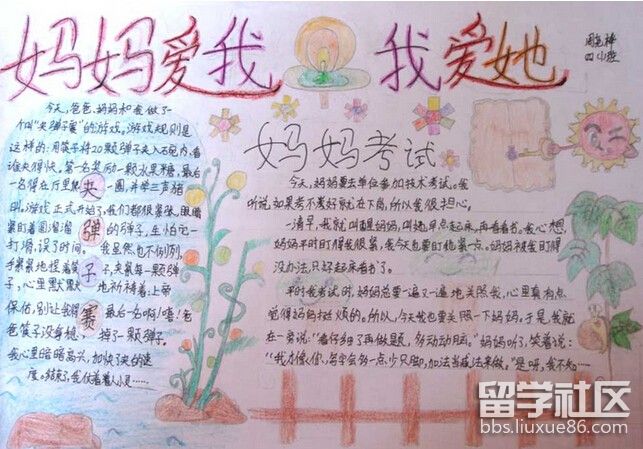 妈妈爱我 我爱她
四小班
今天,爸爸、妈妈和我做了一
个叫"夹弹子赛"的游戏。游戏规则是
这样的:用筷子将20颗弹子夹入石碗内,看
谁夹得快。第一名奖励一颗水果糖,最后
一名得在厅里爬一圈,并学三声猪
叫。游戏正式开始了,我们都很紧张,眼睛
紧盯着圆溜溜的弹子,生怕它一
打滑,误了时间。我虽然也不例外,
手紧紧地捏着筷子,夹紧每一颗弹
子,心里默默地祈祷着:上帝
保佑,别让我得最后一名啊!嘻!爸
爸筷子没拿稳,掉了一颗弹子。
我心里暗暗高兴,加快了夹的速
度。结束了,我伏着着人小见……
夹
弹
子
赛
妈妈考试
今天,妈妈要去单位参加技术考试。我
听说,如果考不好就在下岗,所以我很担心。
一清早,我就叫醒妈妈,叫她早点起床,再看看书。我心想,
妈妈平时盯得我很紧,我今天也要盯她紧一点。妈妈被我盯得
没办法,只好起床看书了。
平时我考试时,妈妈总要一遍又一遍地关照我,心里真有点
觉得妈妈挺烦的。所以,今天我也要关照一下妈妈。于是,我就
在一旁说:"看仔细了再做题,多动动脑。"妈妈听了,笑着说:
"我才像你,写字会多一点少只脚,加法当减法来做。"是呀,我不知…
留学社区
bbs.liuxue86.com